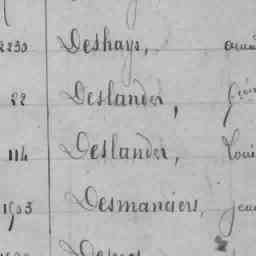 2230 Deshays,
22 Deslander,
114 Deslander, Loui
1903 Desmanciers, jeun